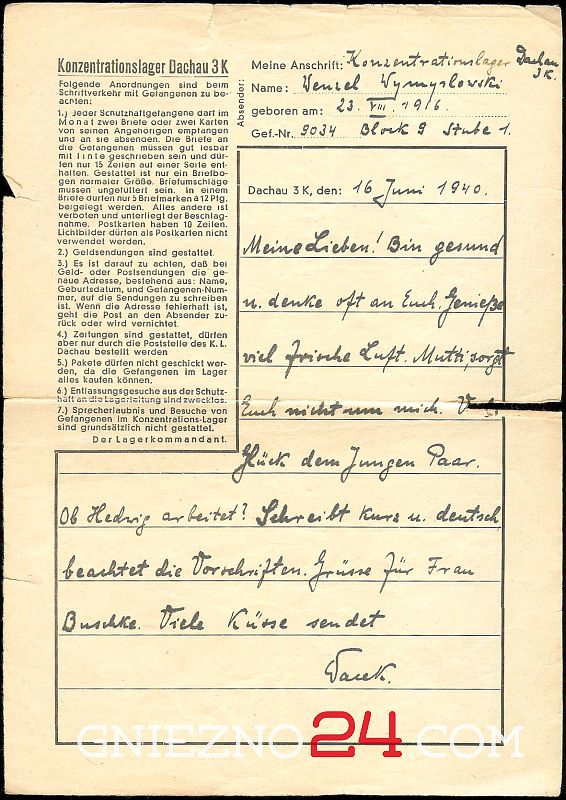 Konzentrationslager Dachau 3 K
Folgende Anordnungen sind beim
Schriftverkehr mit Gefangenen zu be-
achten:
1.) Jeder Schutzhaftgefangene darf im
Monat zwei Briefe oder zwei Karten
von seinen Angehörigen empfangen
und an sie absenden. Die Briefe an
die Gefangenen müssen gut lesbar
mit Tinte geschrieben sein und dür-
fen nur 15 Zeilen auf einer Seite ent-
halten. Gestattet ist nur ein Briefbo-
gen normaler Größe. Briefumschläge
müssen ungefüttert sein. In einem
Briefe dürfen nur 5 Briefmarken à 12 Pfg.
beigelegt werden. Alles andere ist
verboten und unterliegt der Beschlag-
nahme. Postkarten haben 10 Zeilen.
Lichtbilder dürfen als Postkarten nicht
verwendet werden.
2.) Geldsendungen sind gestattet.
3.) Es ist darauf zu achten, daß bei
Geld- oder Postsendungen die ge-
naue Adresse, bestehend aus: Name,
Geburtsdatum, und Gefangenen-Num-
mer, auf die Sendungen zu schreiben
ist. Wenn die Adresse fehlerhaft ist,
geht die Post an den Absender zu-
rück oder wird vernichtet.
4.) Zeitungen sind gestattet, dürfen
aber nur durch die Poststelle des K. L.
Dachau bestellt werden
5.) Pakete dürfen nicht geschickt wer-
den, da die Gefangenen im Lager
alles kaufen können.
6.) Entlassungsgesuche aus der Schutz-
haft an die Lagerleitung sind zwecklos.
7.) Sprecherlaubnis und Besuche von
Gefangenen im Konzentrations-Lager
sind grundsätzlich nicht gestattet.
Der Lagerkommandant.
Absender:
Meine Anschrift: Konzentrationslager Dachau
3K.
Name: Wenzel Wymyslowski
geboren am: 23. VIII 1916.
Gef.-Nr. 9034 Block 9 Stube 1.
Dachau 3 K, den: 16 Juni 1940.
Meine Lieben! Bin gesund
u. denke oft an Euch. Genieße
viel frische Luft. Mutti, sorgt
Euch nicht um mich. Viel
Glück dem Jungen Paar.
Ob Hedwig arbeitet? Schreibt kurz u. deutsch,
beachtet die Vorschriften. Grüsse für Frau
Buschke. Viele Küsse sendet
GNIEZNO24.COM